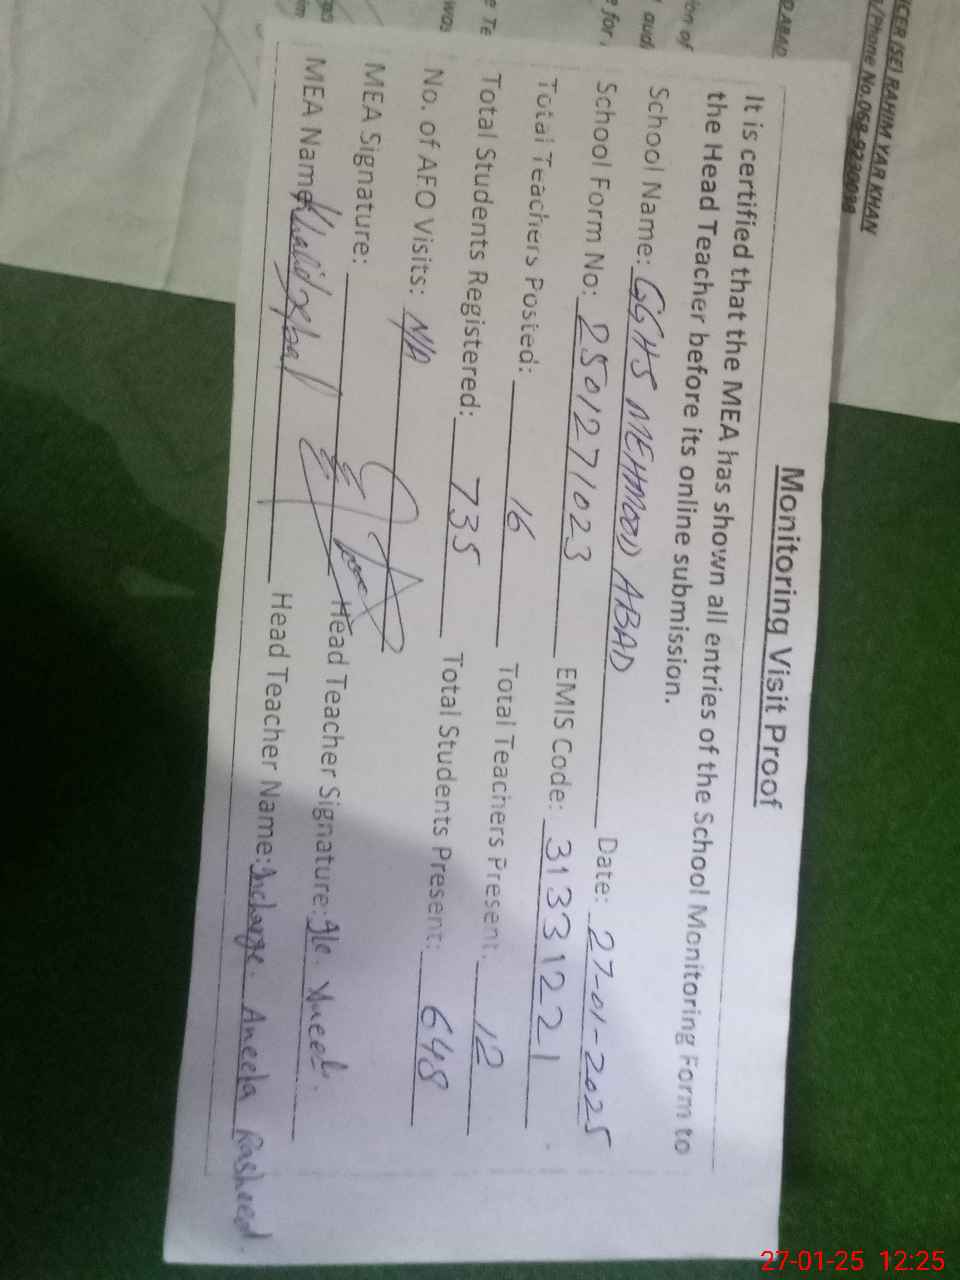 CER (SE) RAHIM YAR KHAN
Phone No.068-9230098
Monitoring Visit Proof
It is certified that the MEA has shown all entries of the School Monitoring Form to
the Head Teacher before its online submission.
School Name: GGHS MEHMOOD ABAD Date: 27-01-2025
School Form No: 2501271023 EMIS Code: 31331221
Total Teachers Posted: 16 Total Teachers Present: 12
Total Students Registered: 735 Total Students Present: 648
No. of AFO Visits: N/A
MEA Signature: Head Teacher Signature:
MEA Name: Khalid Iqbal Head Teacher Name: Incharge. Aneela Rasheed.
27-01-25 12:25